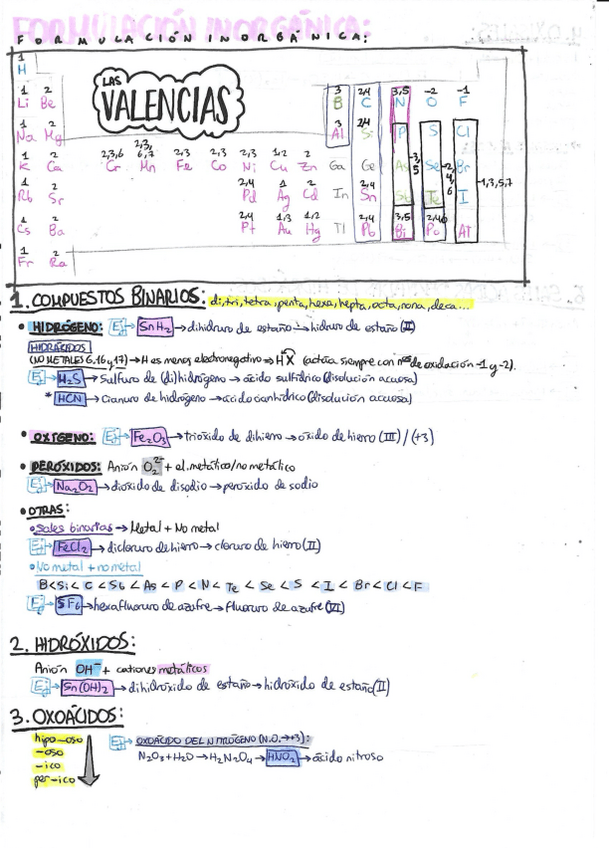 FORMULACIÓN INORGÁNICA:
LAS
VALENCIAS
1
H
1 2 3 2,4 3,5 -2 -1
Li Be B C N O F
1 2 3 2,4
Na Mg Al Si P S Cl
1 2 2,3,6 2,3, 6,7 2,3 2,3 2,3 1,2 2
K Ca Cr Mn Fe Co Ni Cu Zn Ga Ge As Se Br
-3, 3 5 -2, 2, 4, 6 -1,3,5,7
1 2 2,4 1 2 2,4
Rb Sr Pd Ag Cd In Sn Sb Te I
1 2 2,4 1,3 1,2 2,4 3,5 2,4,6
Cs Ba Pt Au Hg Tl Pb Bi Po At
1 2
Fr Ra
1. COMPUESTOS BINARIOS: di, tri, tetra, penta, hexa, hepta, octa, nona, deca...
• HIDRÓGENO: Ej → SnH2 → dihidruro de estaño → hidruro de estaño (II)
HIDRÁCIDOS
(NO METALES G.16 y 17) → H es menos electronegativo → H X (actúa siempre con nos de oxidación -1 y -2).
Ej → H2S → Sulfuro de (di)hidrógeno → ácido sulfídrico (disolución acuosa)
* HCN → Cianuro de hidrógeno → ácido cianhídrico (disolución acuosa)
• OXÍGENO: Ej → Fe2O3 → trióxido de dihierro → óxido de hierro (III) / (+3)
• PERÓXIDOS: Anión O2 2- + el. metálico/no metálico
Ej → Na2O2 → dióxido de disodio → peróxido de sodio
• OTRAS:
• Sales binarias → Metal + No metal
Ej → FeCl2 → dicloruro de hierro → cloruro de hierro (II)
• No metal + no metal
B < Si < C < Sb < As < P < N < Te < Se < S < I < Br < Cl < F
Ej → SF6 → hexafluoruro de azufre → fluoruro de azufre (VI)
2. HIDRÓXIDOS:
Anión OH- + cationes metálicos
Ej → Sn(OH)2 → dihidróxido de estaño → hidróxido de estaño (II)
3. OXOÁCIDOS:
hipo -oso
-oso
-ico
per -ico
Ej → OXOÁCIDO DEL NITRÓGENO (N.O. → +3):
N2O3 + H2O → H2N2O4 → HNO2 → ácido nitroso